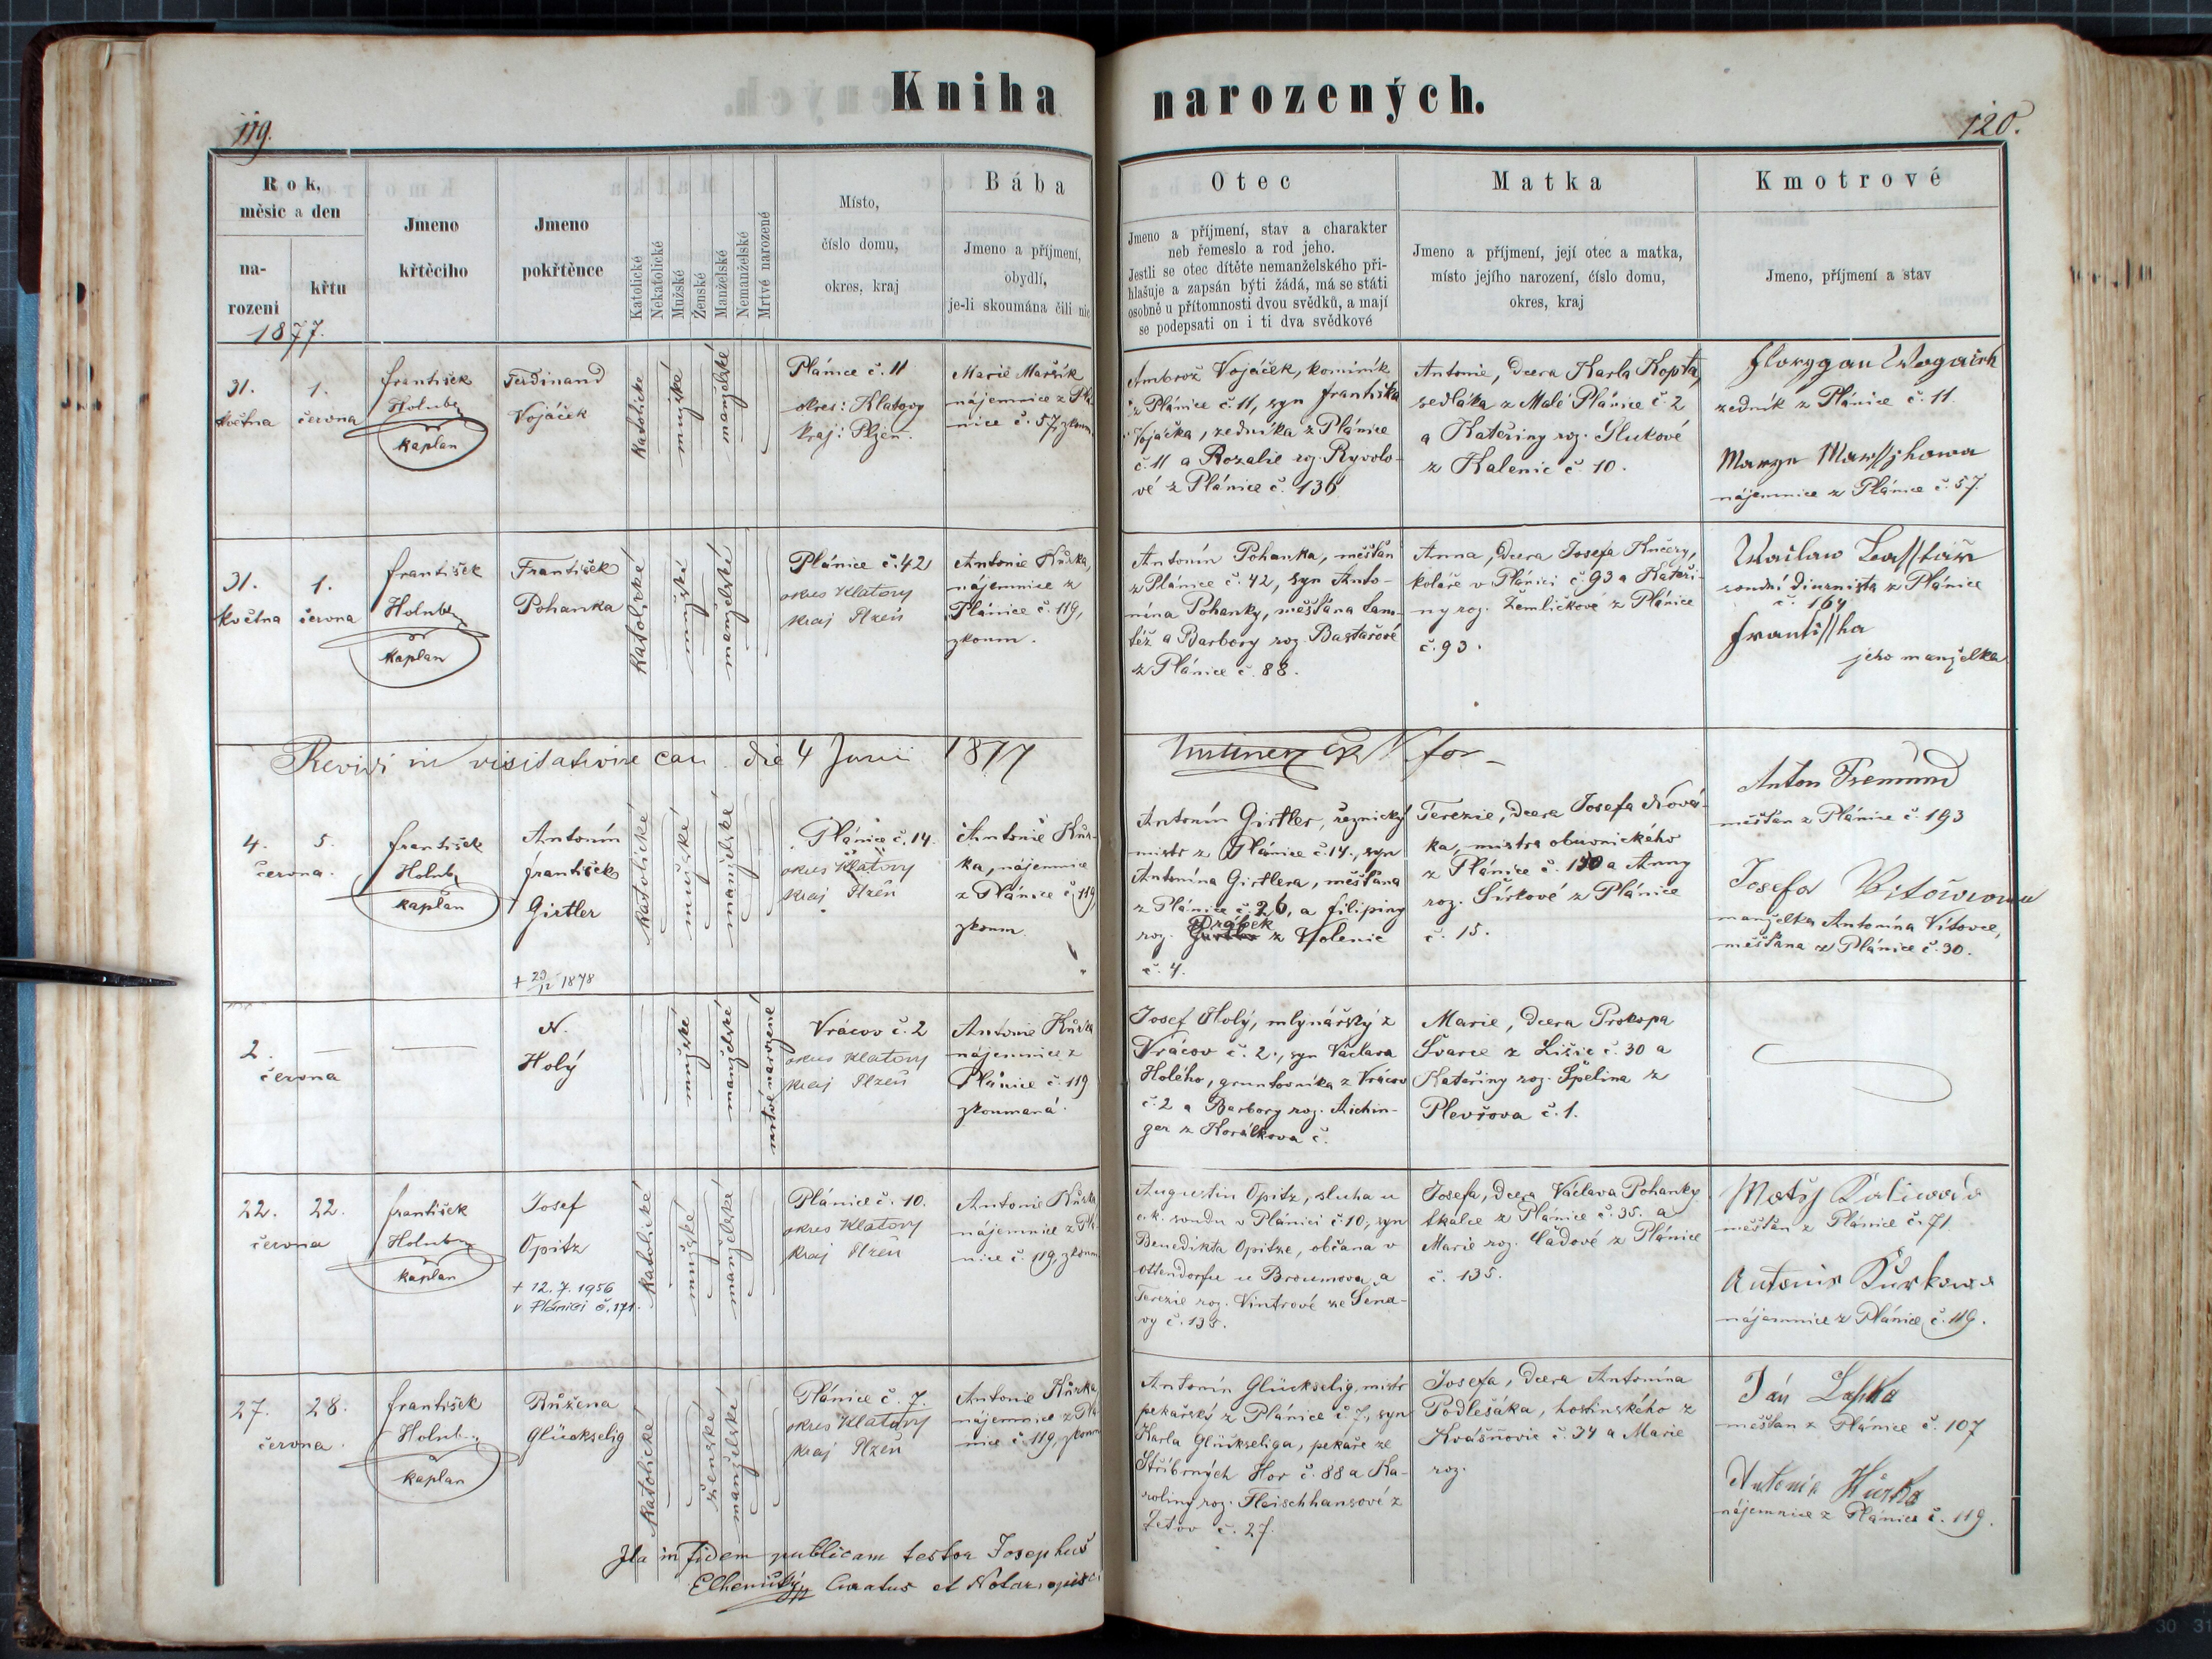 Kniha narozených.
119.
120.
Rok,
měsíc a den
na-
rozeni
křtu
1877.
Jmeno
křtěcího
Jmeno
pokřtěnce
Katolické
Nekatolické
Mužské
Ženské
Manželské
Nemanželské
Mrtvé narozené
Místo,
číslo domu,
okres, kraj
Bába
Jmeno a příjmení,
obydlí,
je-li skoumána čili nic
Otec
Jmeno a příjmení, stav a charakter
neb řemeslo a rod jeho.
Jestli se otec dítěte nemanželského při-
hlašuje a zapsán býti žádá, má se státi
osobně u přítomnosti dvou svědků, a mají
se podepsati on i ti dva svědkové
Matka
Jmeno a příjmení, její otec a matka,
místo jejího narození, číslo domu,
okres, kraj
Kmotrové
Jmeno, příjmení a stav
31.
května
1.
června
František
Holub
kaplan
Ferdinand
Vojáček
katolické
mužské
manželské
Plánice č. 11
okres: Klatovy
kraj: Plzeň.
Marie Maršík
nájemnice z Plá-
nice č. 57, zkoum.
Ambrož Vojáček, kominík
z Plánice č. 11, syn Františka
Vojáčka, zedníka z Plánice
č. 11 a Rozalie rz. Ryvolo-
vé z Plánice č. 136
Antonie, dcera Karla Kopta,
sedláka z Malé Plánice č. 2
a Kateřiny roz.
z Kalenic č. 10.
zedník z Plánice č. 11.
nájemnice z Plánice č. 57.
31.
května
1.
června
František
Holub
kaplan
František
Pohanka
katolické
mužské
manželské
Plánice č. 42
okres Klatovy
kraj Plzeň
Antonie Kůrka,
nájemnice z
Plánice č. 119,
zkoum.
Antonín Pohanka, měšťan
z Plánice č. 42, syn Anto-
nína Pohanky, měšťana tam-
též a Barbory roz. Bastařové
z Plánice č. 88.
Anna, dcera Josefa Kučery,
koláře v Plánici č. 93 a Kateři-
ny roz. Žemličkové z Plánice
č. 93.
soudní diurnista z Plánice
č. 164
Františka
jeho manželka
Revidi in visitatione can. die 4 Junii 1877
4.
5.
června.
František
Holub
kaplan
Antonín
František
Girtler
+ 29/12 1878
katolické
mužské
manželské
Plánice č. 14.
okres Klatovy
kraj Plzeň
Antonie Kůr-
ka, nájemnice
z Plánice č. 119,
zkoum.
Antonín Girtler, řeznický
mistr z Plánice č. 14., syn
Antonína Girtlera, měšťana
z Plánice č. 26, a Filipiny
Drábek
roz. z Kolenic
č. 4.
Terezie, dcera Josefa Nová-
ka, mistra obuvnického
z Plánice č. 130 a Anny
roz. Šírkové z Plánice
č. 15.
měšťan z Plánice č. 193
Josefa
manželka Antonína Vítovce,
měšťana z Plánice č. 30.
2.
června
N.
Holý
mužské
manželské
mrtvě narozené
Vrácov č. 2
okres Klatovy
kraj Plzeň
Antonie Kůrka
nájemnice z
Plánice č. 119
zkoumaná.
Josef Holý, mlynářský z
Vrácov č. 2., syn Václava
Holého, gruntovníka z Vrácov
č. 2 a Barbory roz. Aichin-
ger z Korálkova č.
Marie, dcera Prokopa
Švarce z Ližic č. 30 a
Kateřiny roz. Špelina z
Plevšova č. 1.
22.
22.
června
František
Holub
kaplan
Josef
Opitz
+ 12. 7. 1956
v Plánici č. 171.
katolické
mužské
manželské
Plánice č. 10.
okres Klatovy
kraj Plzeň
Antonie Kůrka
nájemnice z Plá-
nice č. 119, zkoum
Augustin Opitz, sluha u
c. k. soudu v Plánici č. 10, syn
Benedikta Opitze, občana v
Ottendorfu u Broumova a
Terezie roz. Vintrové ze Šena-
vy č. 135.
Josefa, dcera Václava Pohanky
tkalce z Plánice č. 35. a
Marie roz. Čadové z Plánice
č. 135.
Matěj Kaliwoda
měšťan z Plánice č. 71
Antonie Kurkowa
nájemnice z Plánice č. 119.
27.
28.
června.
František
Holub
kaplan
Růžena
Glückselig
katolické
ženské
manželské
Plánice č. 7.
okres Klatovy
kraj Plzeň
Antonie Kůrka,
nájemnice z Plá-
nice č. 119, zkoum
Antonín Glückselig, mistr
pekařský z Plánice č. 7., syn
Karla Glückseliga, pekaře ze
Stříbrných Hor č. 88 a Ka-
roliny roz. Fleischhansové z
Zetov č. 27.
Josefa, dcera Antonína
Podlešáka, hostinského z
Kvášňovic č. 34 a Marie
roz.
Ján
měšťan z Plánice č. 107
Antonia Kůrka
nájemnice z Plánice č. 119.
Ita in fidem publicam testor Josephus
Elhenický, Curatus et Notar.